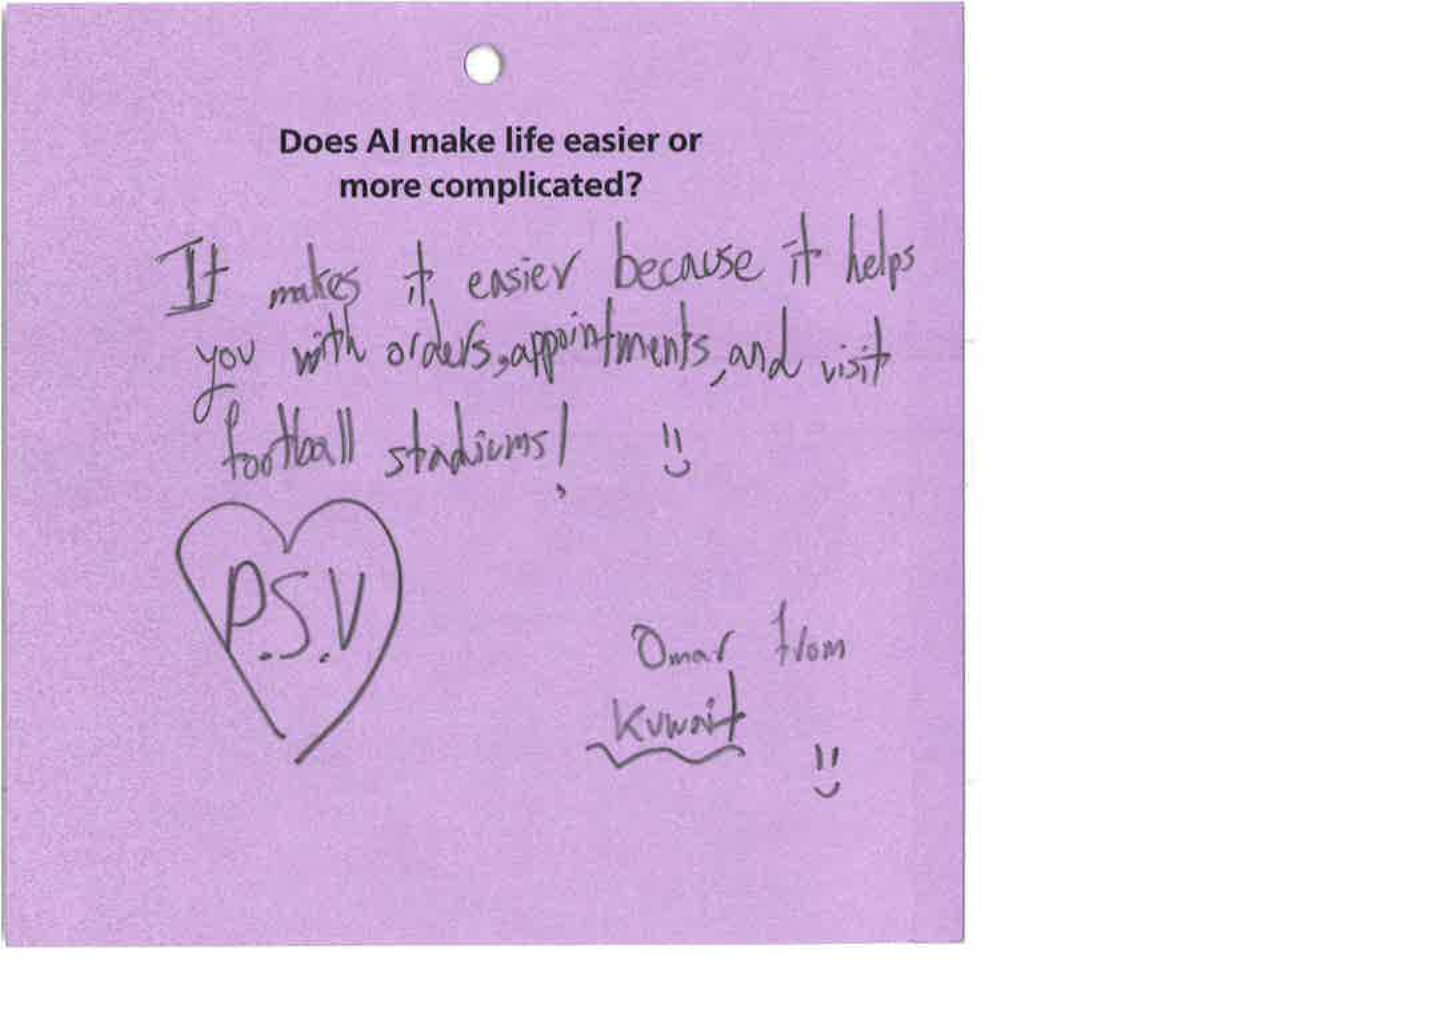 Does AI make life easier or
more complicated?
It makes it easier because it helps
you with orders, appointments, and visit
football stadiums!
P.S.V
Omar from
Kuwait